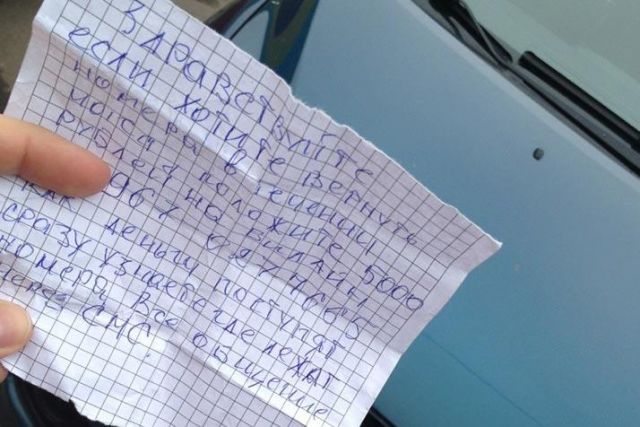 ЗДРАВСТВУЙТЕ
ЕСЛИ ХОТИТЕ ВЕРНУТЬ
НОМЕРА В ТЕЧЕНИИ
ЧАСА ПОЛОЖИТЕ 5000
РУБЛЕЙ НА БИЛАЙН
КАК ДЕНЬГИ ПОСТУПЯТ
СРАЗУ УЗНАЕТЕ ГДЕ ЛЕЖАТ
НОМЕРА, ВСЕ ОБЩЕНИЕ
ЧЕРЕЗ СМС.